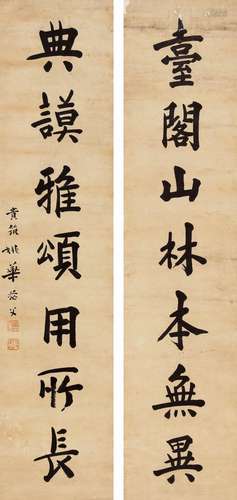 臺閣山林本無異
典謨雅頌用所長
貴筑姚華茫父